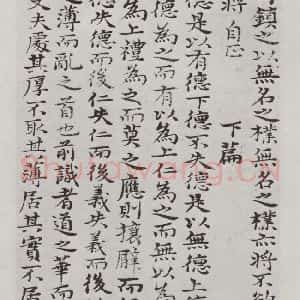 鎮之以無名之樸無名之樸無將不欲
將自正 下篇
德是以有德下德不失德是以無德上
德為之而有以為上為之而無以為
為上禮為之而莫之應則攘臂而
德失德而後仁失仁而後義失義而後
之薄而亂之首也前識者道之華而
丈夫處其厚不取其薄居其實不居
Shufawang.CN